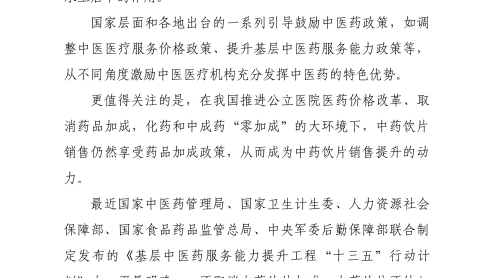 国家层面和各地出台的一系列引导鼓励中医药政策，如调
整中医医疗服务价格政策、提升基层中医药服务能力政策等，
从不同角度激励中医医疗机构充分发挥中医药的特色优势。
更值得关注的是，在我国推进公立医院医药价格改革、取
消药品加成，化药和中成药“零加成”的大环境下，中药饮片
销售仍然享受药品加成政策，从而成为中药饮片销售提升的动
力。
最近国家中医药管理局、国家卫生计生委、人力资源社会
保障部、国家食品药品监管总局、中央军委后勤保障部联合制
定发布的《基层中医药服务能力提升工程“十三五”行动计